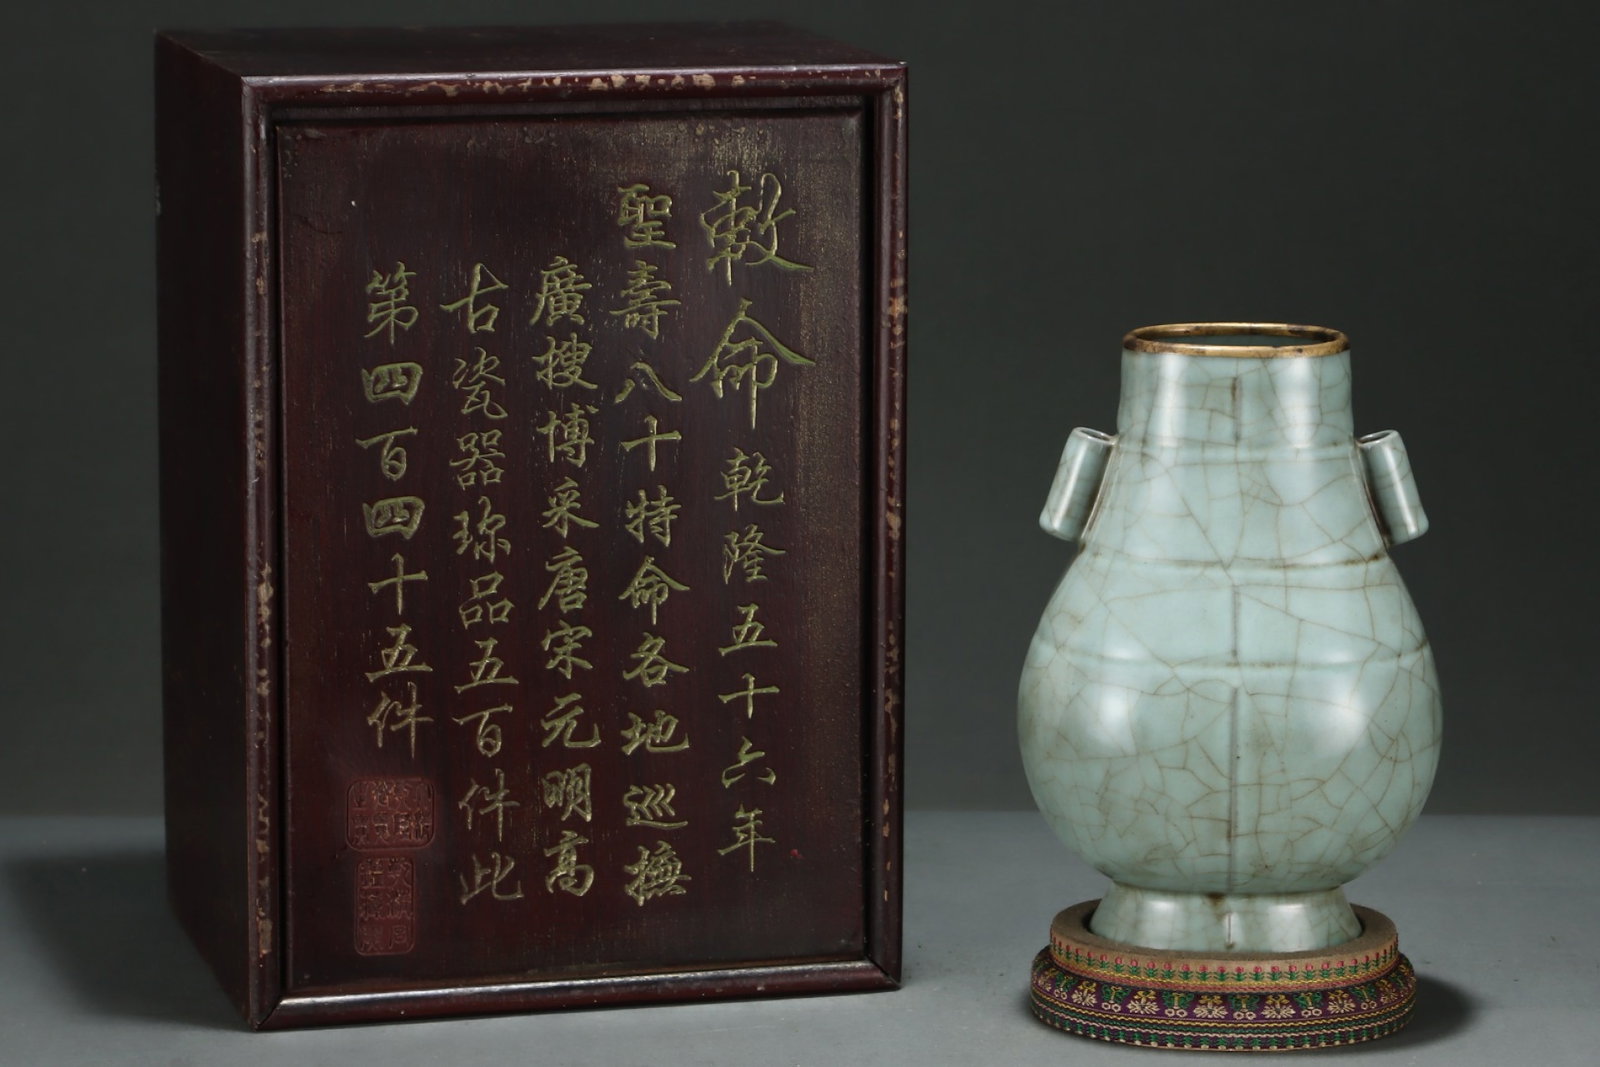 敕命乾隆五十六年
聖壽八十特命各地巡撫
廣搜博采唐宋元明高
古瓷器珎品五百件此
第四百四十五件